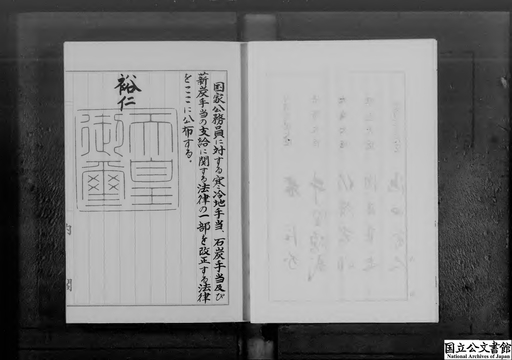 国家公務員に対する寒冷地手当、石炭手当及び
薪炭手当の支給に関する法律の一部を改正する法律
をここに公布する。
裕仁
天皇
御璽
国立公文書館
National Archives of Japan